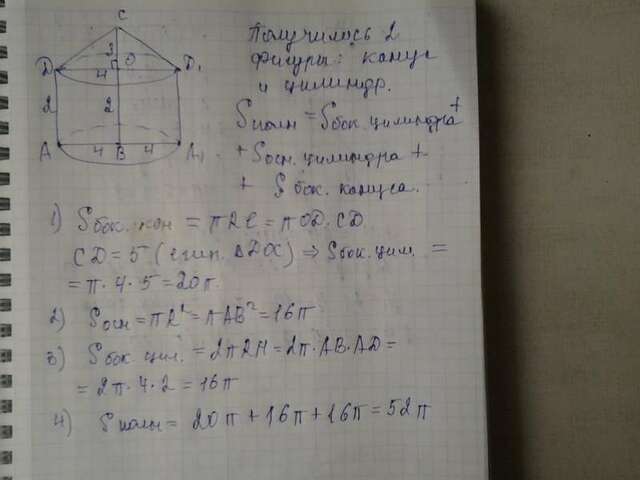 C
3
D O D₁
4
2 2
A 4 B 4 A₁
Получилось 2
фигуры: конус
и цилиндр.
Sполн = Sбок. цилиндра +
+ Sосн. цилиндра +
+ S бок. конуса.
1) Sбок. кон = πRl = π OD · CD.
CD = 5 (египт. ΔDOC) ⇒ Sбок. цил. =
= π · 4 · 5 = 20π
2) Sосн = πR² = πAB² = 16π
3) Sбок цил. = 2πRH = 2π · AB · AD =
= 2π · 4 · 2 = 16π
4) Sполн = 20π + 16π + 16π = 52π